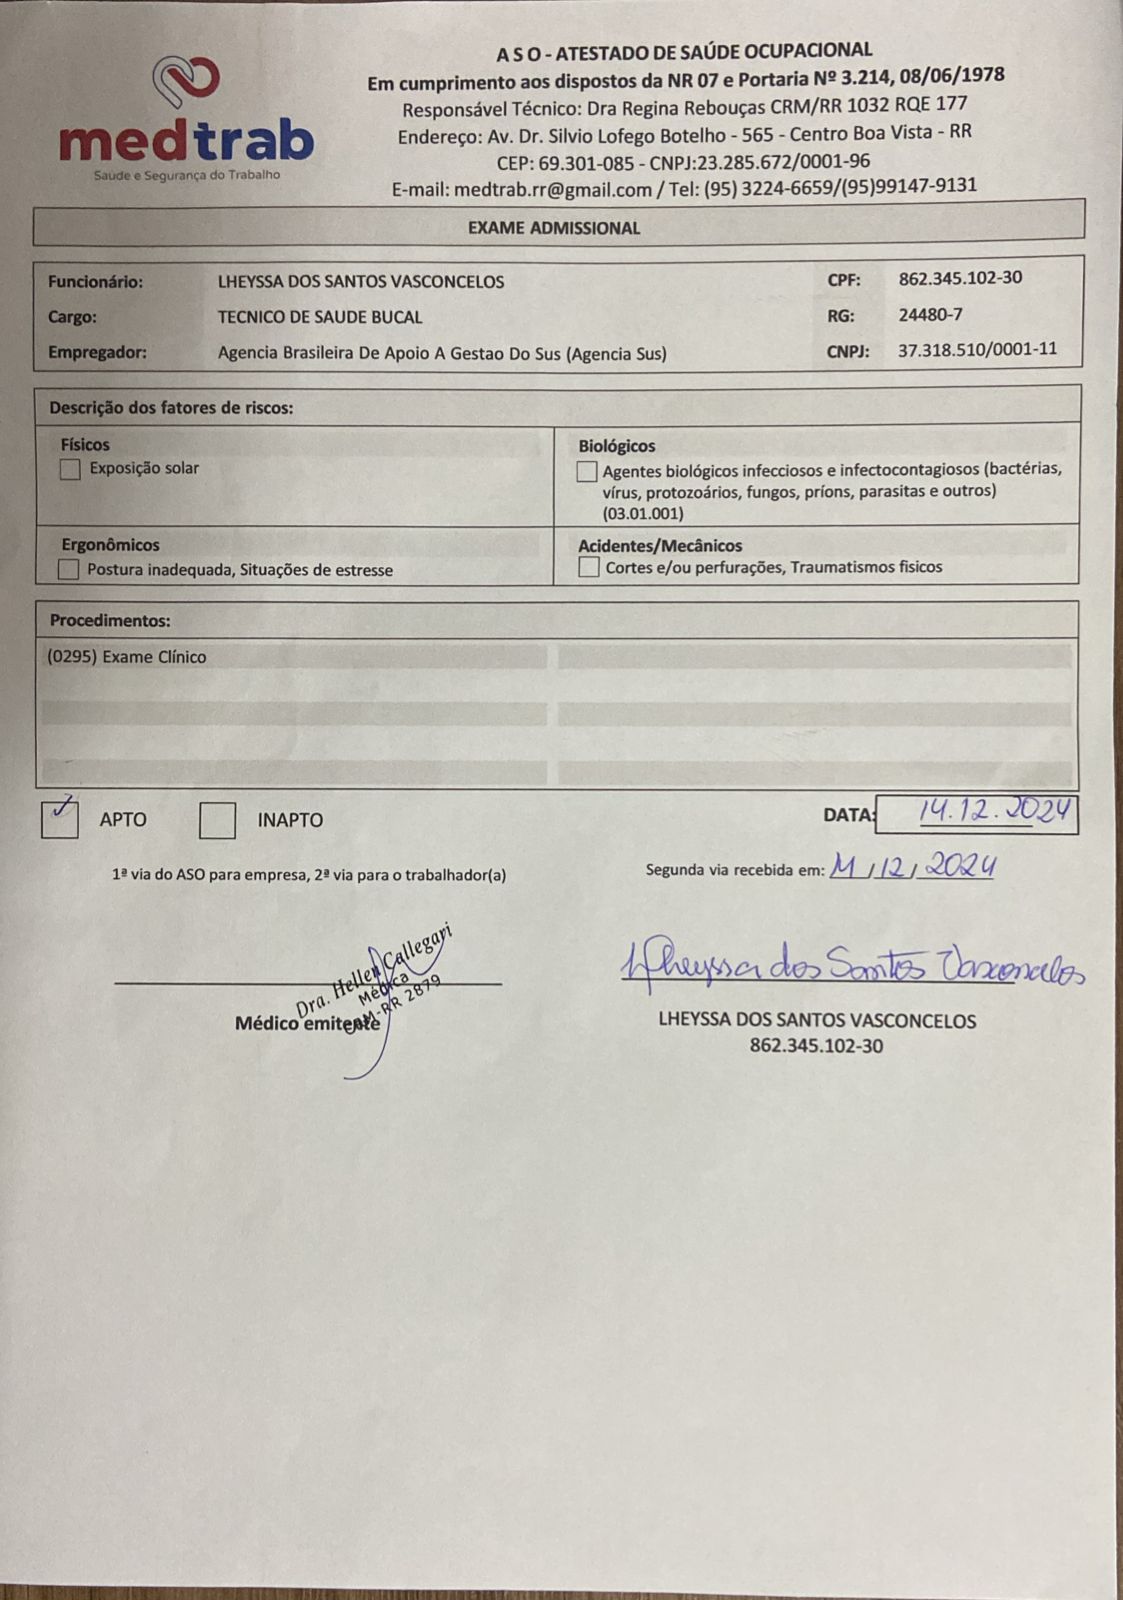 medtrab
Saúde e Segurança do Trabalho
A S O - ATESTADO DE SAÚDE OCUPACIONAL
Em cumprimento aos dispostos da NR 07 e Portaria Nº 3.214, 08/06/1978
Responsável Técnico: Dra Regina Rebouças CRM/RR 1032 RQE 177
Endereço: Av. Dr. Silvio Lofego Botelho - 565 - Centro Boa Vista - RR
CEP: 69.301-085 - CNPJ:23.285.672/0001-96
E-mail: medtrab.rr@gmail.com / Tel: (95) 3224-6659/(95)99147-9131
EXAME ADMISSIONAL
Funcionário: LHEYSSA DOS SANTOS VASCONCELOS CPF: 862.345.102-30
Cargo: TECNICO DE SAUDE BUCAL RG: 24480-7
Empregador: Agencia Brasileira De Apoio A Gestao Do Sus (Agencia Sus) CNPJ: 37.318.510/0001-11
Descrição dos fatores de riscos:
Físicos
Exposição solar
Biológicos
Agentes biológicos infecciosos e infectocontagiosos (bactérias,
vírus, protozoários, fungos, príons, parasitas e outros)
(03.01.001)
Ergonômicos
Postura inadequada, Situações de estresse
Acidentes/Mecânicos
Cortes e/ou perfurações, Traumatismos fisicos
Procedimentos:
(0295) Exame Clínico
APTO INAPTO DATA: 14.12.2024
1ª via do ASO para empresa, 2ª via para o trabalhador(a)
Segunda via recebida em: /12/2024
Dra. Hellen Callegari
Médica
CRM-RR 2879
Médico emitente
Lheyssa dos Santos Vasconcelos
LHEYSSA DOS SANTOS VASCONCELOS
862.345.102-30